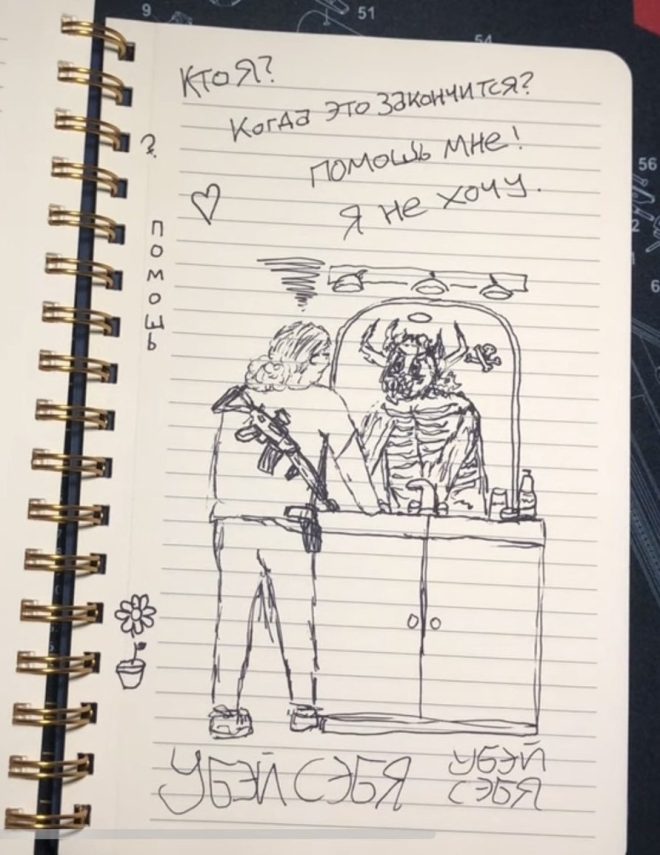 9
51
54
Кто Я?
Когда это закончится?
помошь мне!
Я не хочу.
?
помошь
56
УБЭЙ СЭБЯ
УБЭЙ
СЭБЯ